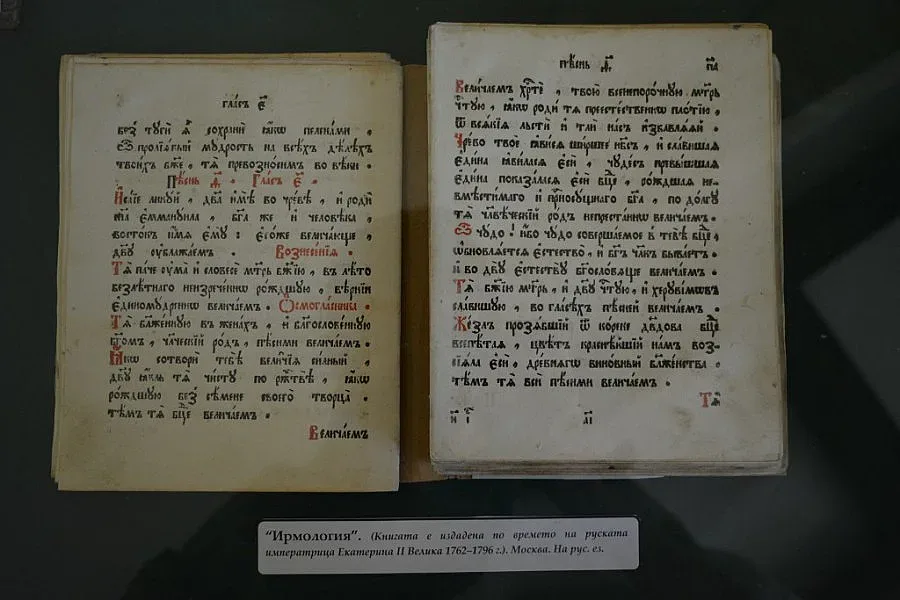 гла́съ є҃
без̾ тꙋги̑ ѧ҆̀ сохранѝ ꙗ҆́кѡ пелена́ми ,
мꙋ́дрость на всѣ́хъ дѣ́лѣхъ
твои́хъ бж҃е , тѧ̀ превозно́симъ во вѣ́ки .
Пѣ́снь д҃ . Гла́съ є҃ .
И҆са́їе ликꙋ́й , два҃ и҆мѣ̀ во чре́вѣ , и҆ родѝ
сн҃а є҆мманꙋ́ила , бг҃а же и҆ человѣ́ка ,
восто́къ и҆́мѧ є҆мꙋ̀ : є҆го́же велича́юще ,
дв҃ꙋ ᲂу҆блажа́емъ . Вознесе́нїѧ .
Тѧ̀ па́че ᲂу҆ма̀ и҆ словесѐ мт҃рь бж҃їю , въ лѣ́то
безлѣ́тнаго неизрече́ннѡ ро́ждшꙋю , вѣ́рнїи
є҆диномꙋ́дреннѡ велича́емъ . Ѻ҆смогла́сника .
Тѧ̀ блаже́ннꙋю въ жена́хъ , и҆ блг҃ослове́ннꙋю
бг҃омъ , чл҃ческїй ро́дъ , пѣ́сньми велича́емъ .
Ꙗ҆́кѡ сотворѝ тебѣ̀ вели́чїѧ си́льный ,
дв҃ꙋ ꙗ҆́вль тѧ̀ чи́стꙋ по ржⷭ҇твѣ̀ , ꙗ҆́кѡ
ро́ждшꙋю без̾ сѣ́мене своего̀ творца̀ .
тѣ́мъ тѧ̀ бц҃е велича́емъ .
Велича́емъ
пѣ́снь д҃ п҃а
Велича́емъ хрⷭ҇тѐ , твою̀ всенепоро́чнꙋю мт҃рь
чⷭ҇тꙋю , ꙗ҆́кѡ родѝ тѧ̀ преесте́ственнѡ пло́тїю ,
ѿ всѧ́кїѧ льстѝ и҆ тлѝ на́съ и҆збавлѧ́ѧй .
Чре́во твоѐ ꙗ҆ви́сѧ ши́ршее нб҃съ , и҆ сла́внѣйшаѧ
є҆ди́на ꙗ҆ви́ласѧ є҆сѝ , чꙋде́съ превы́шшаѧ
є҆ди́на показа́ласѧ є҆сѝ бц҃е , ро́ждшаѧ не-
вмѣсти́маго и҆ присносꙋ́щнаго бг҃а , по до́лгꙋ
тѧ̀ чл҃вѣ́ческїй ро́дъ непреста́ннѡ велича́емъ .
Ѽ чꙋ́до ! и҆́бо чꙋ́до соверша́емое въ тебѣ̀ бц҃е ,
ѡ҆бновлѧ́етсѧ є҆стество̀ , и҆ бг҃ъ чл҃къ быва́етъ .
и҆ во двꙋ̀ є҆стествꙋ̀ бг҃осло́вѧще велича́емъ .
Тѧ̀ бж҃їю мт҃рь , и҆ дв҃ꙋ чⷭ҇тꙋю , и҆ херꙋві́мѡвъ
сла́внѣйшꙋю , во гласѣ́хъ пѣ́сней велича́емъ .
Же́злъ прозѧ́бшїй ѿ ко́рене дв҃дова бц҃е
всепѣ́таѧ , цвѣ́тъ краснѣ́йшїй на́мъ воз-
сїѧ́ла є҆сѝ , дре́внѧгѡ вино́вный блаже́нства .
тѣ́мъ тѧ̀ всѝ пѣ́сньми велича́емъ .
Тѧ̀
а҃і
"Ирмология". (Книгата е издадена по времето на руската
императрица Екатерина II Велика 1762–1796 г.). Москва. На рус. ез.